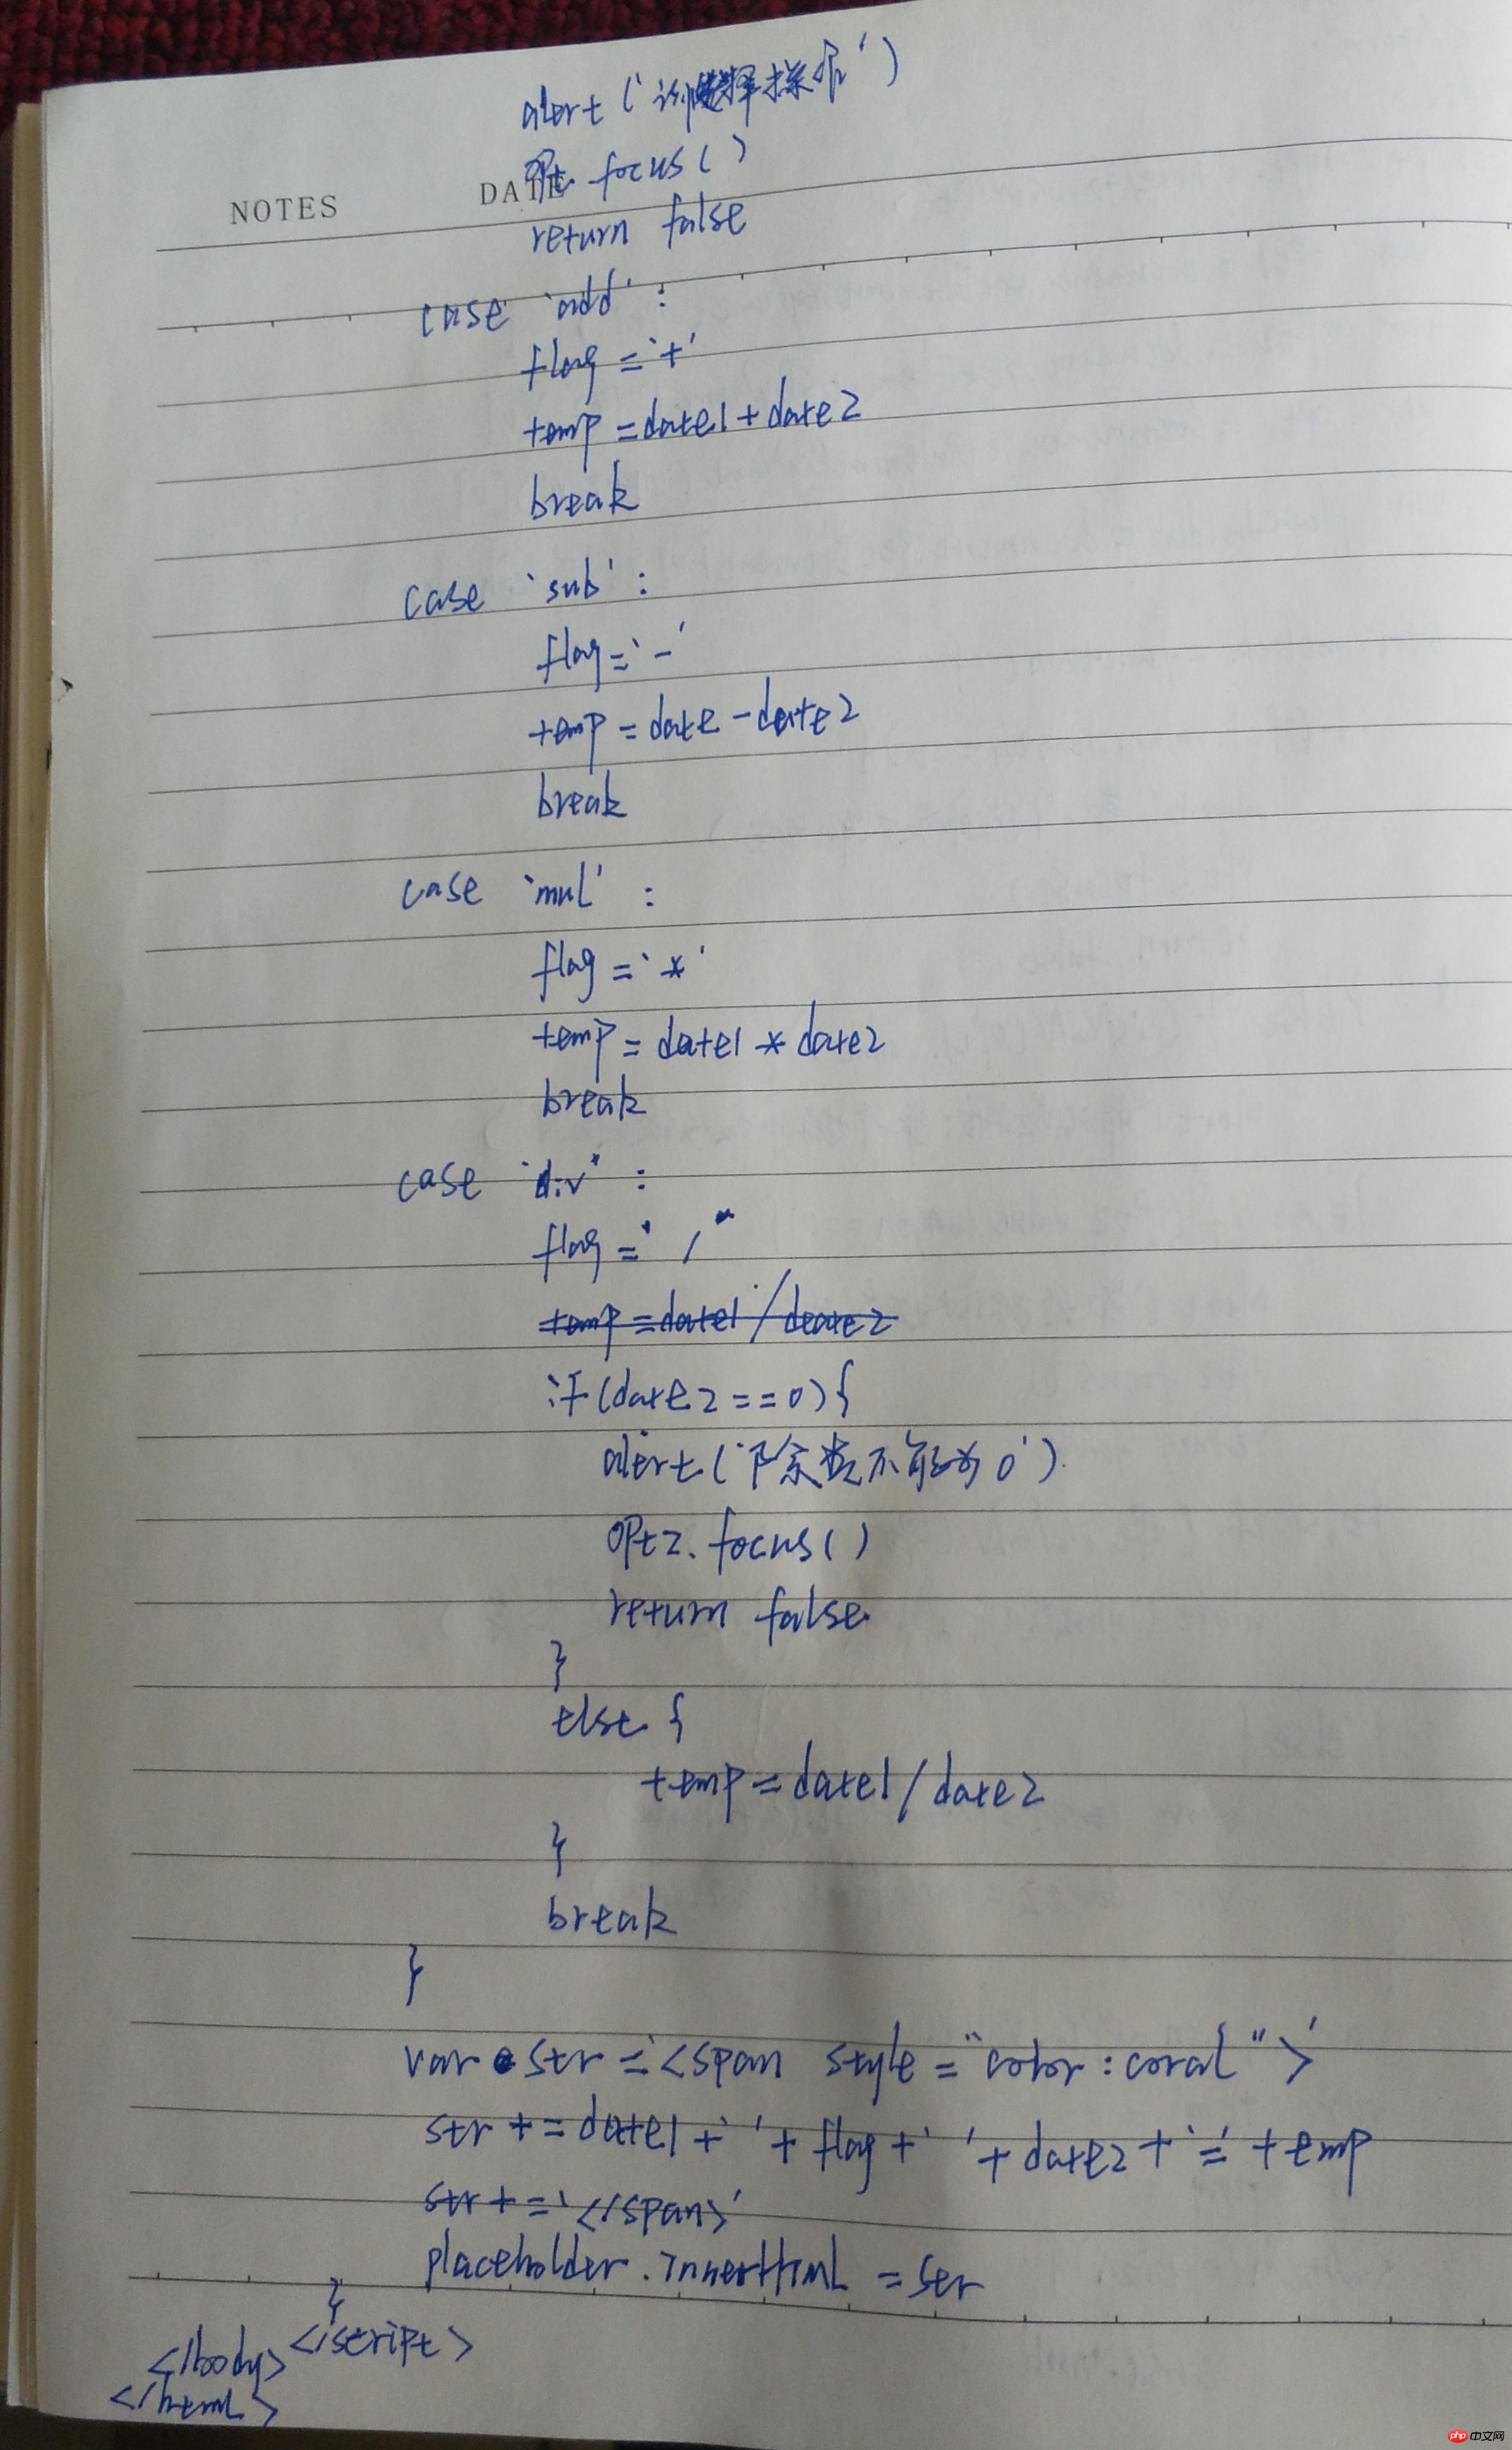 alert('请选择操作')
NOTES DATE
opt.focus()
return false
case 'add' :
flag='+'
temp=date1+date2
break
case 'sub' :
flag='-'
temp=date-date2
break
case 'mul' :
flag='*'
temp=date1*date2
break
case 'div' :
flag='/'
temp=date1/deate2
if(date2==0){
alert('除数不能为0')
opt2.focus()
return false
}
else{
temp=date1/date2
}
break
}
var str='<span style="color:coral">'
str+=date1+' '+flag+' '+date2+'='+temp
str+='</span>'
placeholder.innerHtml=str
}
</script>
</body>
</html>
php 中文网